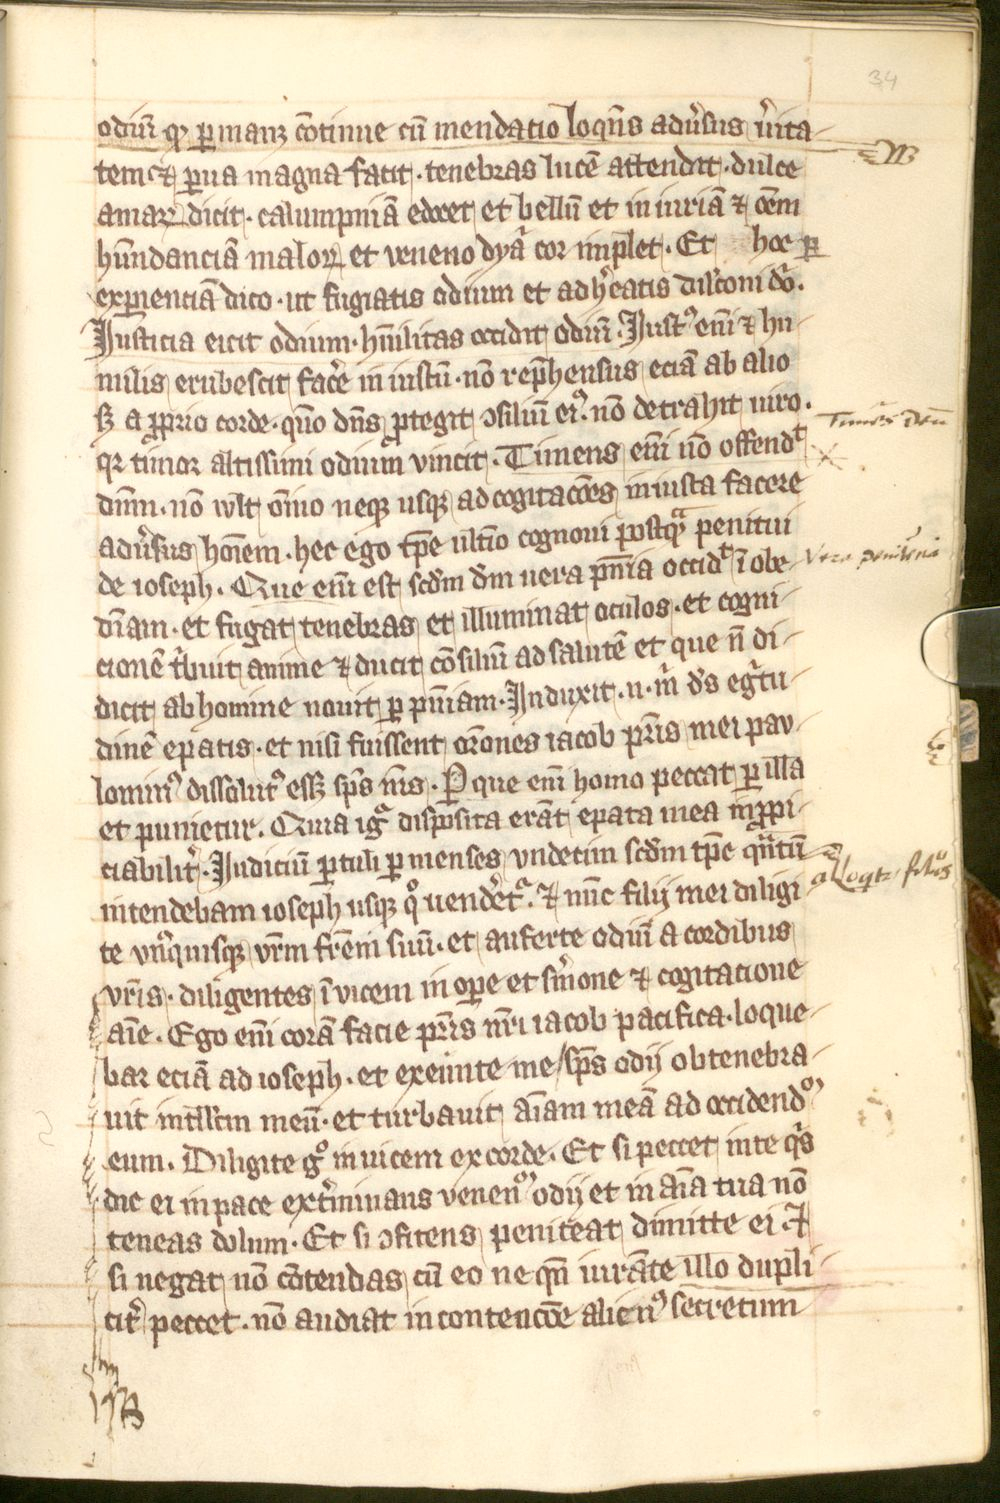 34
odiū q̄ ꝑmanꝫ cōtinue cū mendatio loquēs adūsus ūita-
tem ⁊ ꝑua magna facit · tenebras lucē attendit · dulce
amaꝝ dicit · calumpniā edocet et bellū et iniuriā ⁊ oēm
hūndanciā maloꝝ et veneno dyā cor implet · Et hoc ꝑ
exꝑienciā dico · ut fugiatis odium et adhēatis
Iusticia eicit odium · hūilitas occidit odiū · Iustꝰ eīm ⁊ hu-
milis erubescit facē in iustū · nō rep̄hensus eciā ab alio
sꝫ a ꝓprio corde · qūo dn̄s ꝓtegit ↄsiliū eiꝰ · nō detrahit uiro ·
qꝛ timor altissimi odium vincit · Timens eīm nō offendᵗ
dn̄m · nō wlt oīno neqꝫ usqꝫ ad cogitacōes iniusta facere
adūsus hōiem · hec ego tꝑe ultīo cognoui postqᵃ penitui
de ioseph · Que eīm est scdm dm̄ uera pn̄ia occidᵗ īobe-
diam · et fugat tenebras et illuminat oculos · et cogni-
cionē tͥbuit anime ⁊ ducit cōsiliū ad salutē et que n̄ di-
dicit ab homine nouit ꝑ pn̄iam · Induxit · n · m̄ ds̄ egͥtu-
dinē epatis · et nisi fuissent orōnes iacob pr̄is mei pau-
lominꝰ dissolutꝰ essꝫ sps̄ ms̄ · P que eīm homo peccat ꝑ illa
et punietur · Quia igͥ disposita erāt epata mea inꝓpi-
ciabilit̄ · Iudiciū ꝑtuli ꝑ menses vndecim scdm tꝑe qᵃtū
intendebam ioseph usqꝫ qͦ uendēt̄ᵃ · ⁊ nūc filij mei diligi-
te vnꝰquisqꝫ vr̄m frēm suū · et auferte odiū a cordibus
vr̄is · diligentes īvicem in oꝑe et sm̄one ⁊ cogitacione
aīe · Ego eīm corā facie pr̄is nr̄i iacob pacifica · loque-
bar eciā ad ioseph · et exeunte me sps̄ odij obtenebra-
uit intllcm meū · et turbauit aīam meā ad occidendꝰ
eum · Diligite gͦ inuicem ex corde · Et si peccet in te qͥs
dic ei in pace ext̄minans venenꝰ odij et in aīa tua nō
teneas dolum · Et si ↄfitens peniteat dimitte ei · ⁊
si negat nō cōtendas cū eo ne qn̄ iurāte illo dupli-
cit̄ peccet · nō audiat in contencōe alienꝰ secretum
Timēs deū
Vera penitēcia